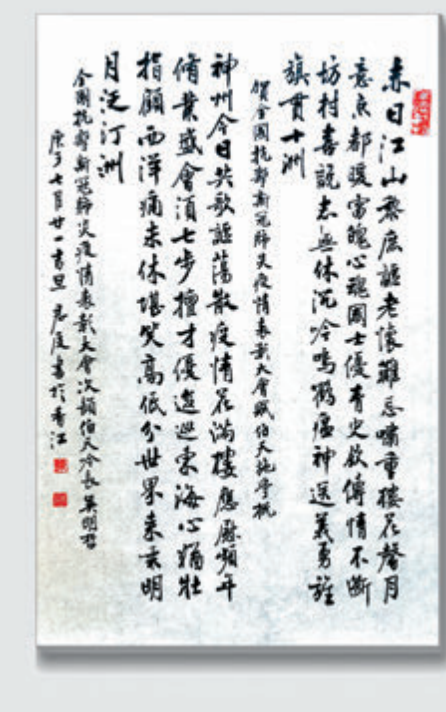 赤日江山黎庶謳老懷難忘嘯重樓花馨月
意京都暖雷魄心魂國士優青史欲傳情不斷
坊村喜說志無休沉冷嗚瘟神送義勇旌
旗貫十洲
賀全國抗擊新冠肺炎疫情表彰大會賦伯天施學概
神州今日共歌謳蕩散疫情花滿樓應頻年
脩業盛會須七步擅才優逡巡東海心猶壯
指顧西洋痛未休堪笑高低分世界來去明
月泛汀洲
全國抗擊新冠肺炎疫情表彰大會次韻伯天吟長吳明哲
庚子七月廿一吉旦君度書於香江